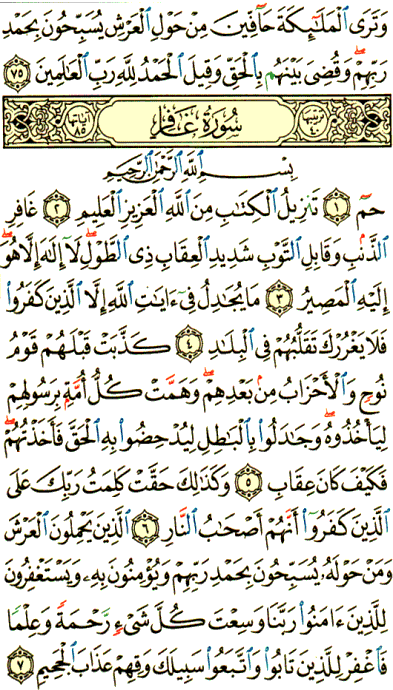 وَتَرَى ٱلْمَلَٰٓئِكَةَ حَآفِّينَ مِنْ حَوْلِ ٱلْعَرْشِ يُسَبِّحُونَ بِحَمْدِ
رَبِّهِمْ ۖ وَقُضِىَ بَيْنَهُم بِٱلْحَقِّ وَقِيلَ ٱلْحَمْدُ لِلَّهِ رَبِّ ٱلْعَٰلَمِينَ ٧٥
ترتيبها ٤٠ سُورَةُ غَافِرٍ آياتها ٨٥
بِسْمِ ٱللَّهِ ٱلرَّحْمَٰنِ ٱلرَّحِيمِ
حمٓ ١ تَنزِيلُ ٱلْكِتَٰبِ مِنَ ٱللَّهِ ٱلْعَزِيزِ ٱلْعَلِيمِ ٢ غَافِرِ
ٱلذَّنۢبِ وَقَابِلِ ٱلتَّوْبِ شَدِيدِ ٱلْعِقَابِ ذِى ٱلطَّوْلِ ۖ لَآ إِلَٰهَ إِلَّا هُوَ ۖ
إِلَيْهِ ٱلْمَصِيرُ ٣ مَا يُجَٰدِلُ فِىٓ ءَايَٰتِ ٱللَّهِ إِلَّا ٱلَّذِينَ كَفَرُوا۟
فَلَا يَغْرُرْكَ تَقَلُّبُهُمْ فِى ٱلْبِلَٰدِ ٤ كَذَّبَتْ قَبْلَهُمْ قَوْمُ
نُوحٍ وَٱلْأَحْزَابُ مِنۢ بَعْدِهِمْ ۖ وَهَمَّتْ كُلُّ أُمَّةٍۭ بِرَسُولِهِمْ
لِيَأْخُذُوهُ ۖ وَجَٰدَلُوا۟ بِٱلْبَٰطِلِ لِيُدْحِضُوا۟ بِهِ ٱلْحَقَّ فَأَخَذْتُهُمْ ۖ
فَكَيْفَ كَانَ عِقَابِ ٥ وَكَذَٰلِكَ حَقَّتْ كَلِمَتُ رَبِّكَ عَلَى
ٱلَّذِينَ كَفَرُوٓا۟ أَنَّهُمْ أَصْحَٰبُ ٱلنَّارِ ٦ ٱلَّذِينَ يَحْمِلُونَ ٱلْعَرْشَ
وَمَنْ حَوْلَهُۥ يُسَبِّحُونَ بِحَمْدِ رَبِّهِمْ وَيُؤْمِنُونَ بِهِۦ وَيَسْتَغْفِرُونَ
لِلَّذِينَ ءَامَنُوا۟ رَبَّنَا وَسِعْتَ كُلَّ شَىْءٍ رَّحْمَةً وَعِلْمًا
فَٱغْفِرْ لِلَّذِينَ تَابُوا۟ وَٱتَّبَعُوا۟ سَبِيلَكَ وَقِهِمْ عَذَابَ ٱلْجَحِيمِ ٧